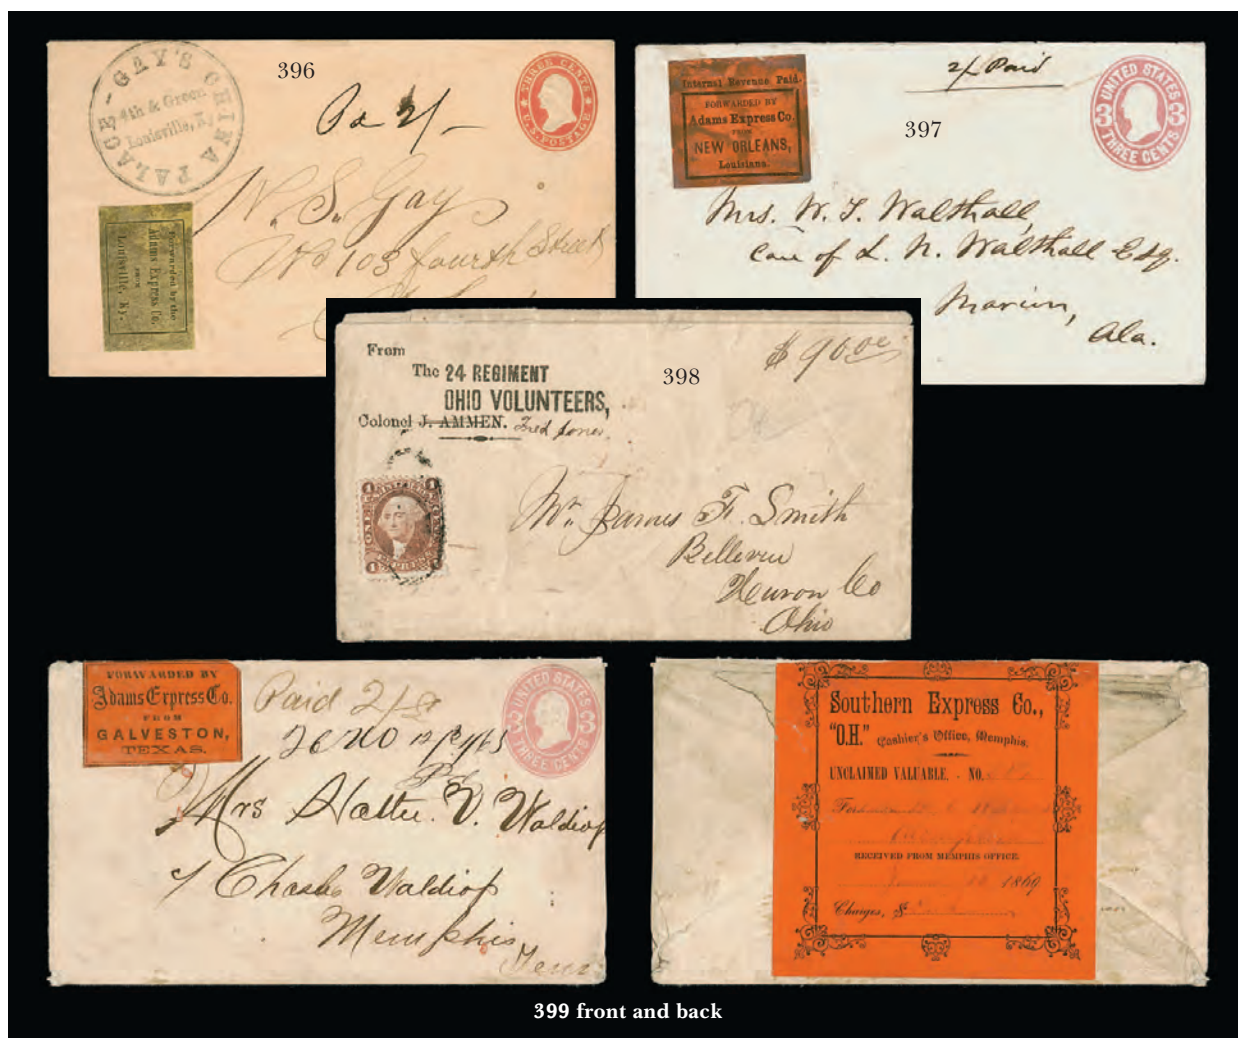 396
GAY'S CHINA PALACE
4th & Green
Louisville, K
THREE CENTS
U.S. POSTAGE
Pd 2/-
N. S. Gay
No 103 Fourth Street
Forwarded by the
Adams Express Co.
FROM
Louisville, Ky.
397
Internal Revenue Paid.
FORWARDED BY
Adams Express Co.
FROM
NEW ORLEANS,
Louisiana.
2/ Paid
UNITED STATES
3 3
THREE CENTS
Mrs. W. T. Walthall,
Care of L. N. Walthall Esq.
Marion,
Ala.
398
From
The 24 REGIMENT
OHIO VOLUNTEERS,
Colonel J. AMMEN. Fred Jones.
$ 90 00
Mr. James F. Smith
Bellevue
Huron Co
Ohio
FORWARDED BY
Adams Express Co.
FROM
GALVESTON,
TEXAS.
Paid 2/
UNITED STATES
3 3
THREE CENTS
Mrs Hattie. V. Waldrop
Waldrop
Memphis
Tenn
Southern Express Co.,
"O.H." Cashier's Office, Memphis.
UNCLAIMED VALUABLE. - NO.
RECEIVED FROM MEMPHIS OFFICE
1869
Charges, $
399 front and back